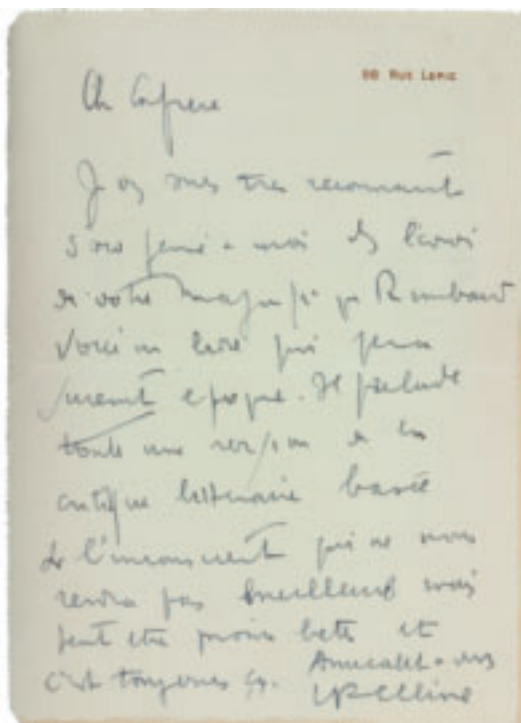 98 Rue Lepic
Ch Confrere
Je vs suis tres reconnaissant
d'avoir pensé à moi ds l'envoi
de votre magnifique Rimbaud
Voici un livre qui fera
surement epoque. Il prelude
toute une revision de la
critique litteraire basée
sur l'inconscient qui ne nous
rendra pas meilleurs mais
peut etre moins betes et
c'est toujours ça. Amicalet à vous
LF Céline